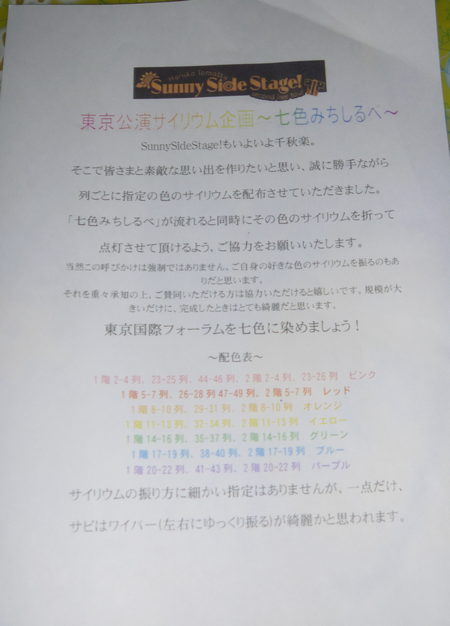 Haruka Tomatsu
Sunny Side Stage!
東京公演サイリウム企画～七色みちしるべ～
SunnySIdeStage!もいよいよ千秋楽。
そこで皆さまと素敵な思い出を作りたいと思い、誠に勝手ながら
列ごとに指定の色のサイリウムを配布させていただきました。
「七色みちしるべ」が流れると同時にその色のサイリウムを折って
点灯させて頂けるよう、ご協力をお願いいたします。
当然この呼びかけは強制ではありません。ご自身の好きな色のサイリウムを振るのもあ
りだと思います。
それを重々承知の上、ご賛同いただける方は協力いただけると嬉しいです。規模が大
きいだけに、完成したときはとても綺麗だと思います。
東京国際フォーラムを七色に染めましょう！
～配色表～
1階 2-4 列、23-25 列、44-46 列、2階 2-4 列、23-26 列 ピンク
1階 5-7 列、26-28 列 47-49 列、2階 5-7 列 レッド
1階 8-10 列、29-31 列、2階 8-10 列 オレンジ
1階 11-13 列、32-34 列、2階 11-13 列 イエロー
1階 14-16 列、35-37 列、2階 14-16 列 グリーン
1階 17-19 列、38-40 列、2階 17-19 列 ブルー
1階 20-22 列、41-43 列、2階 20-22 列 パープル
サイリウムの振り方に細かい指定はありませんが、一点だけ、
サビはワイパー(左右にゆっくり振る)が綺麗かと思われます。